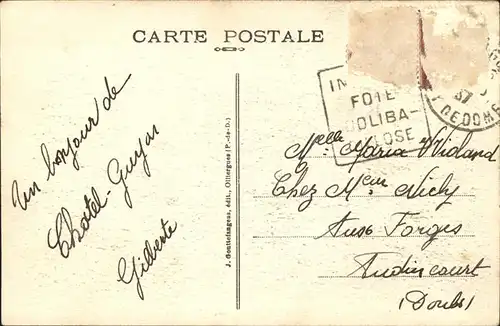 CARTE POSTALE
Un bonjour de
Chatel-Guyon
Gilberte
J. Gouttefangeas, édit., Olliergues (P.-de-D.)
IN
FOIE
COLIBA-
LOSE
37
Melle Maria Widand
Chez Meur Nicly
Aux Forges
Audincourt
(Doubs)